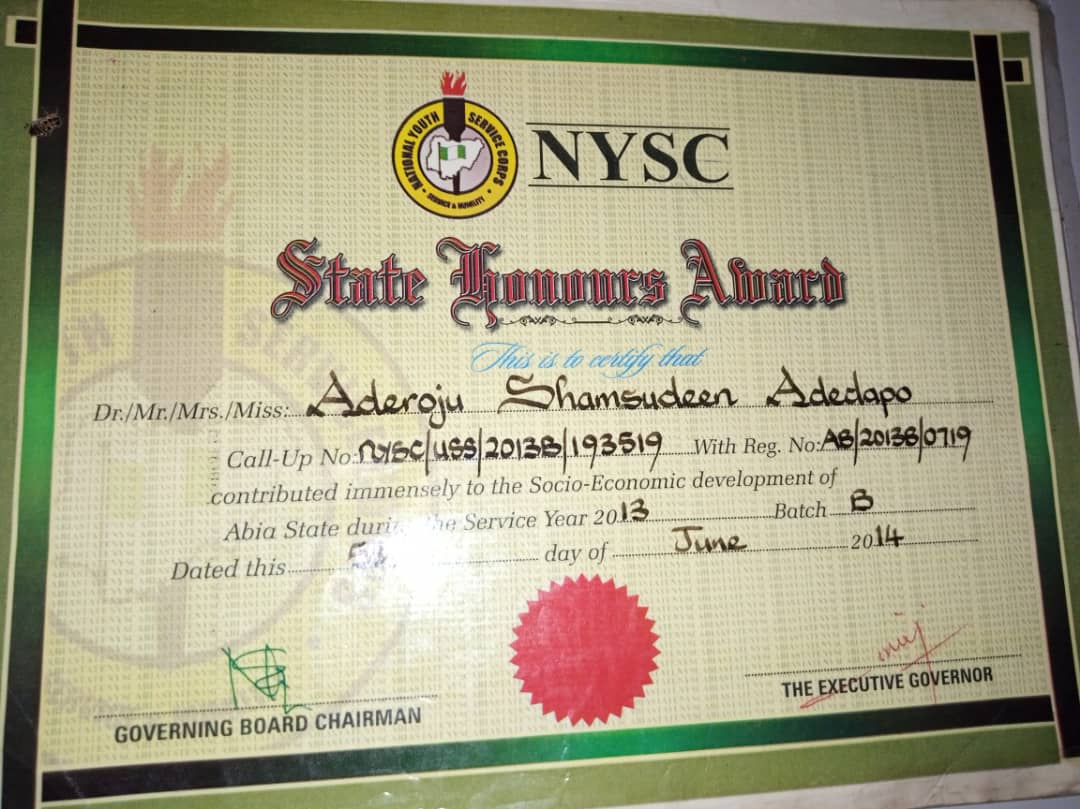 NATIONAL YOUTH SERVICE CORPS
SERVICE & HUMILITY
NYSC
State Honours Award
This is to certify that
Dr./Mr./Mrs./Miss: Aderoju Shamsudeen Adedapo
Call-Up No: NYSC/USS/2013B/193519 With Reg. No: AB/2013B/0719
contributed immensely to the Socio-Economic development of
Abia State the Service Year 2013 Batch B
Dated this day of June 2014
GOVERNING BOARD CHAIRMAN
THE EXECUTIVE GOVERNOR